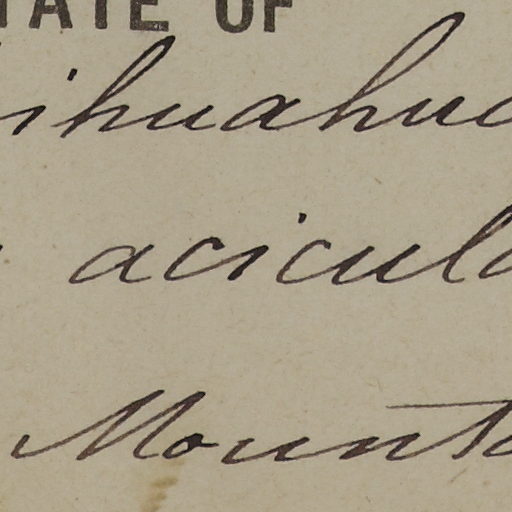 TATE OF
ihuahua
acicula
Mounta